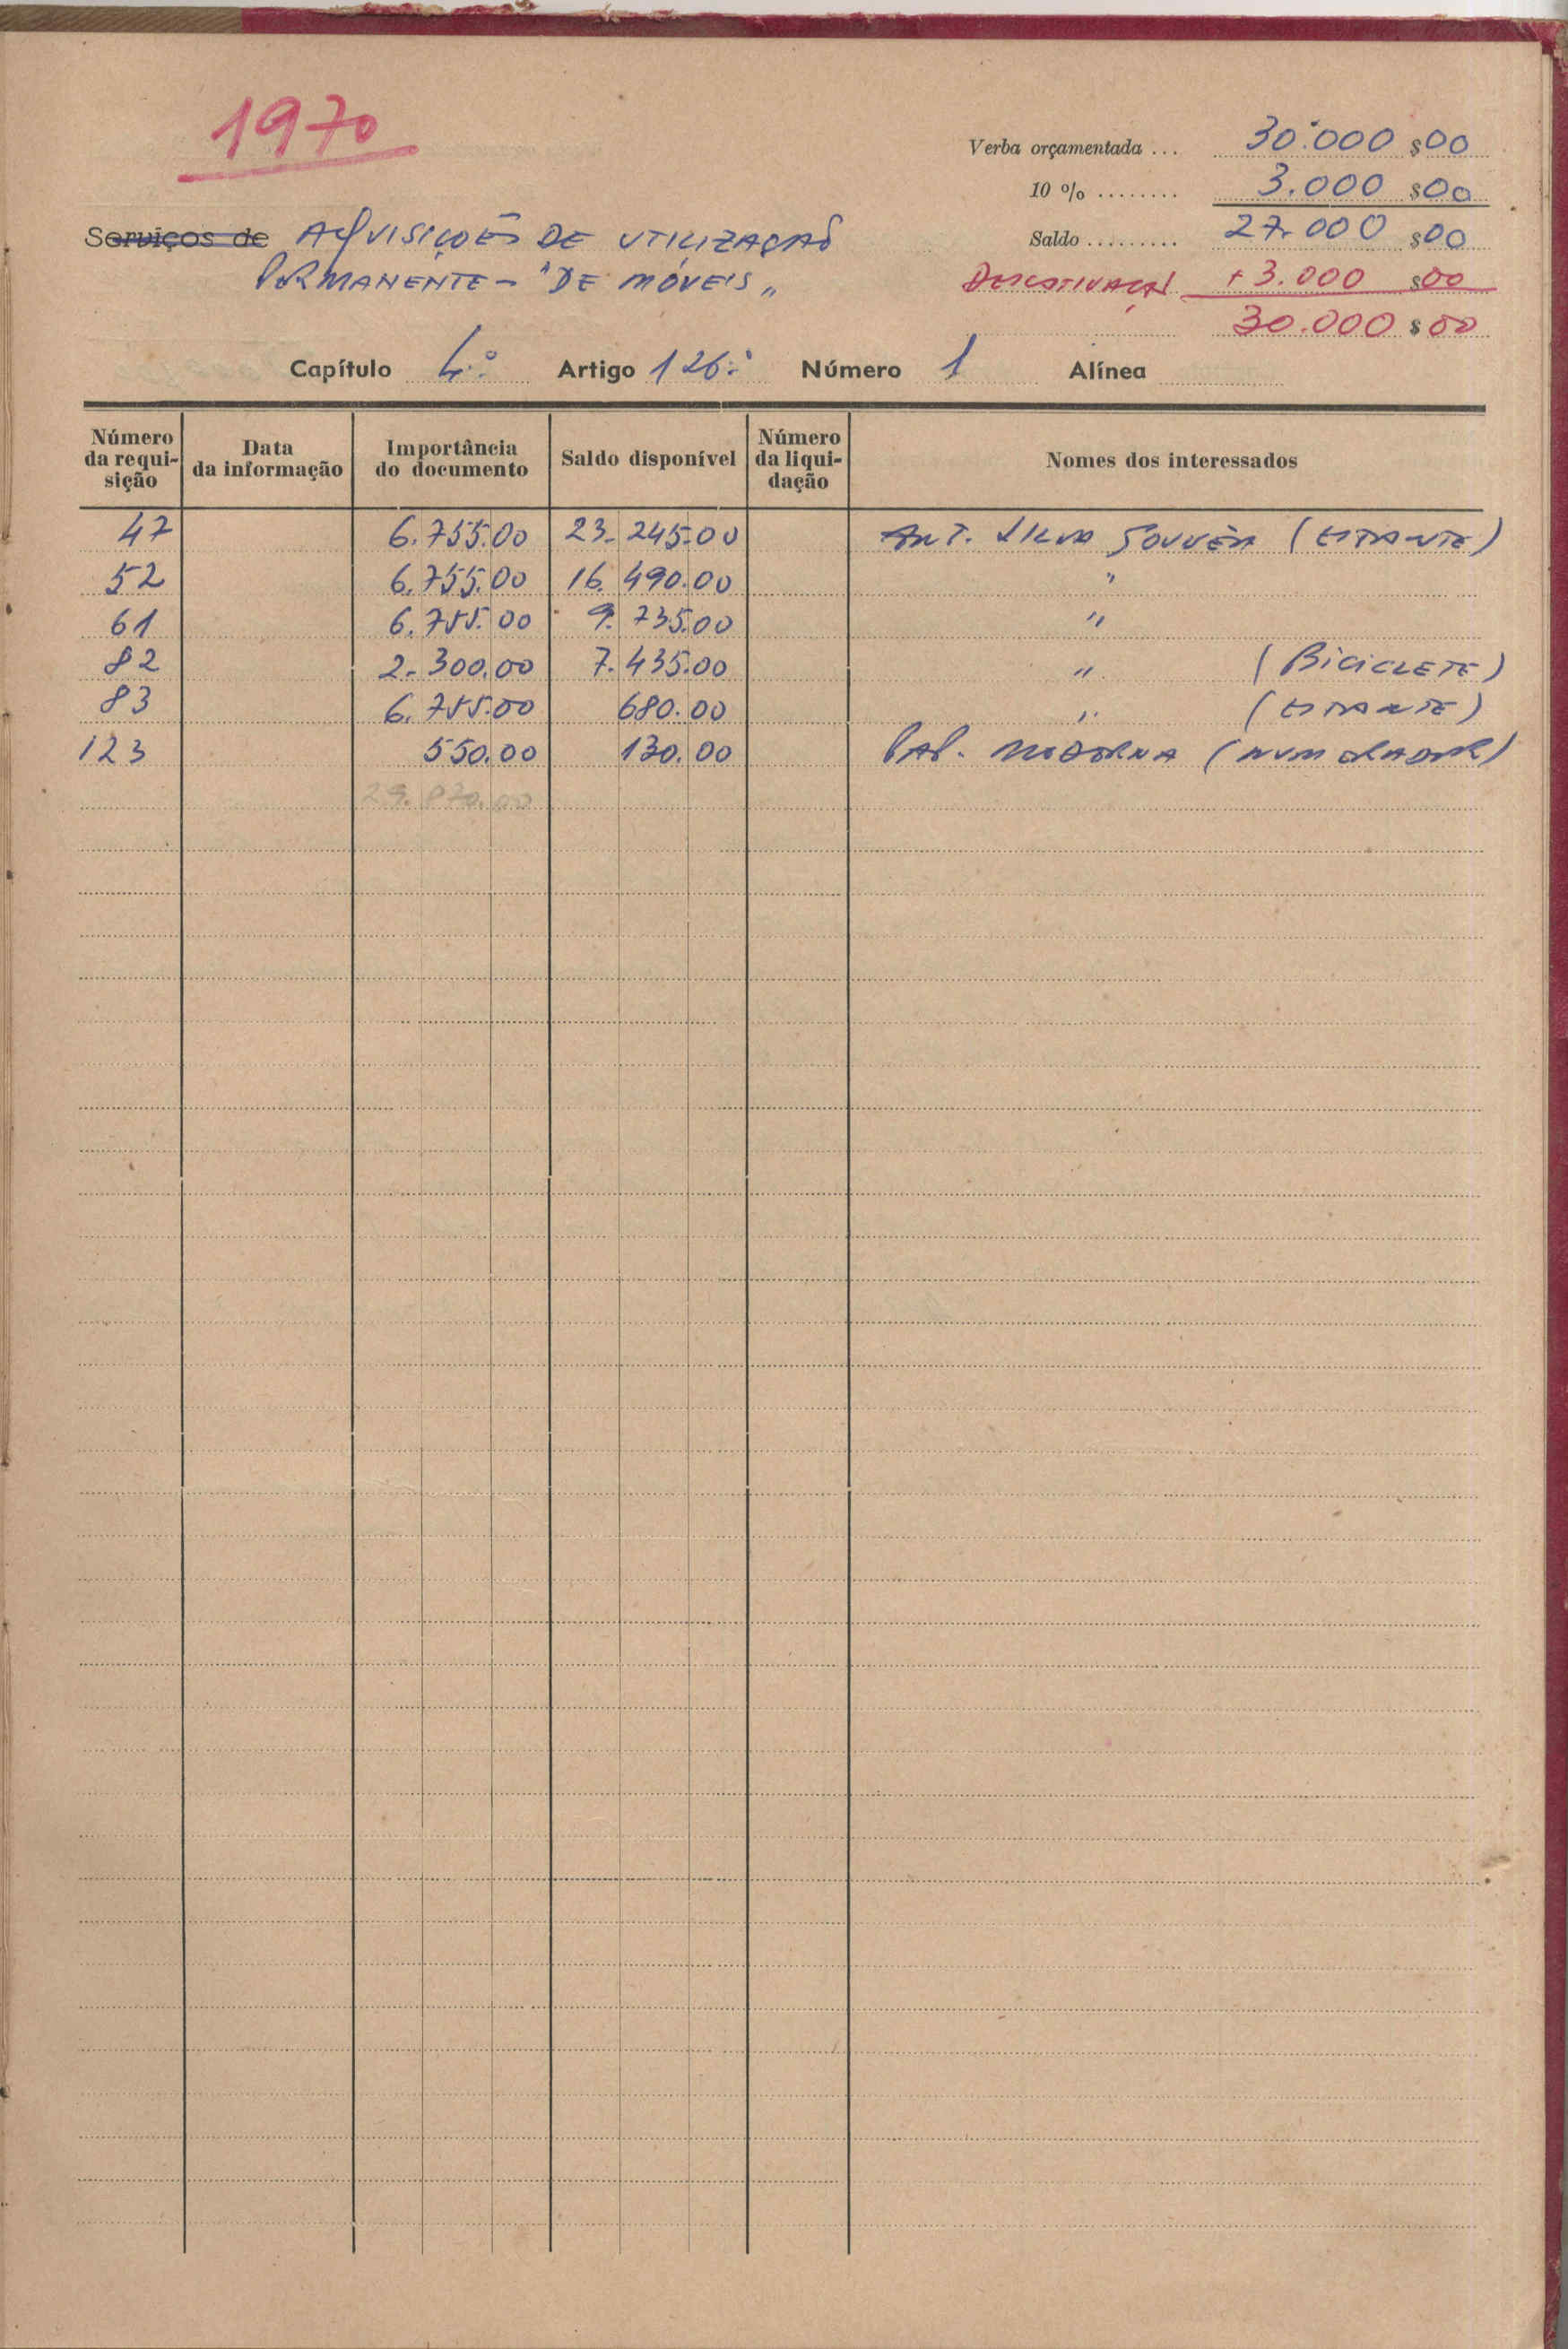 1970
Verba orçamentada ... 30.000 $00
10 % ........ 3.000 $00
Serviços de AQUISIÇÕES DE UTILIZAÇÃO
Saldo ......... 27.000 $00
PERMANENTE - "DE MÓVEIS"
+ 3.000 $00
30.000 $00
Capítulo 4.º Artigo 126.º Número 1 Alínea
Número da requi-sição Data da informação Importância do documento Saldo disponível Número da liqui-dação Nomes dos interessados
47 6.755.00 23.245.00 ANT. SILVA GOUVÊA (ESTANTE)
52 6.755.00 16.490.00 "
61 6.755.00 9.735.00 "
82 2.300.00 7.435.00 " (BICICLETE)
83 6.755.00 680.00 " (ESTANTE)
123 550.00 130.00 PAP. MODERNA (NUMERADOR)
29.870.00